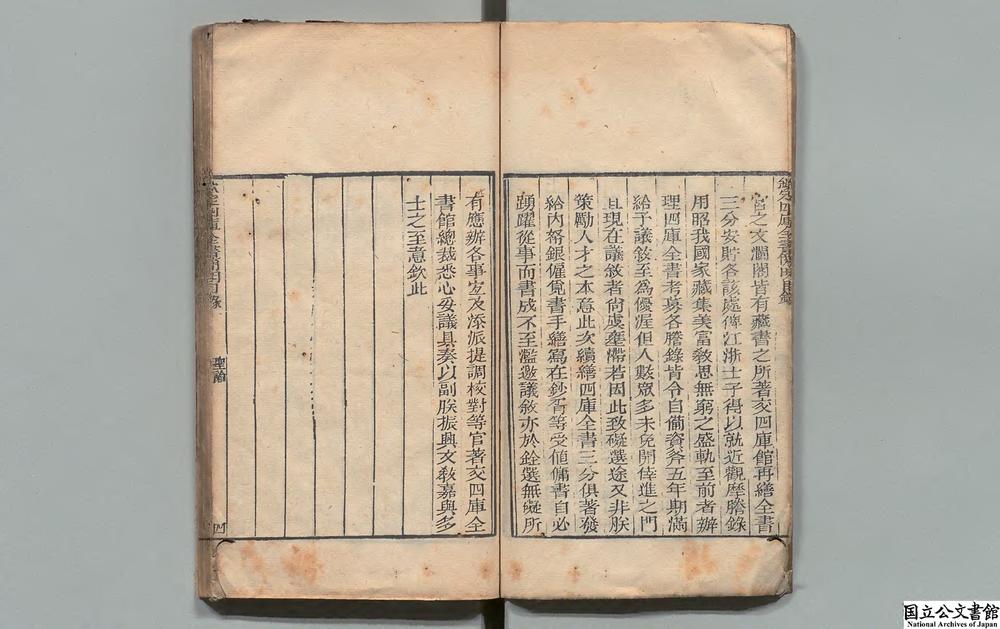 欽定四庫全書簡明目錄
宮之文瀾閣皆有藏書之所著交四庫館再繕全書
三分安貯各該處俾江浙士子得以就近觀摩謄錄
用昭我國家藏集美富敎思無窮之盛軌至前者辦
理四庫全書考募各謄錄皆令自備資斧五年期滿
給予議敘至為優渥但人數眾多未免開倖進之門
且現在議敘者尚虞壅滯若因此致礙選途又非朕
策勵人才之本意此次續繕四庫全書三分俱著發
給內帑銀僱覓書手繕寫在鈔胥等受值傭書自必
踴躍從事而書成不至濫邀議敘亦於銓選無礙所
有應辦各事宜及添派提調校對等官著交四庫全
書館總裁悉心妥議具奏以副朕振興文敎嘉與多
士之至意欽此
欽定四庫全書簡明目錄
聖諭
四
国立公文書館
National Archives of Japan